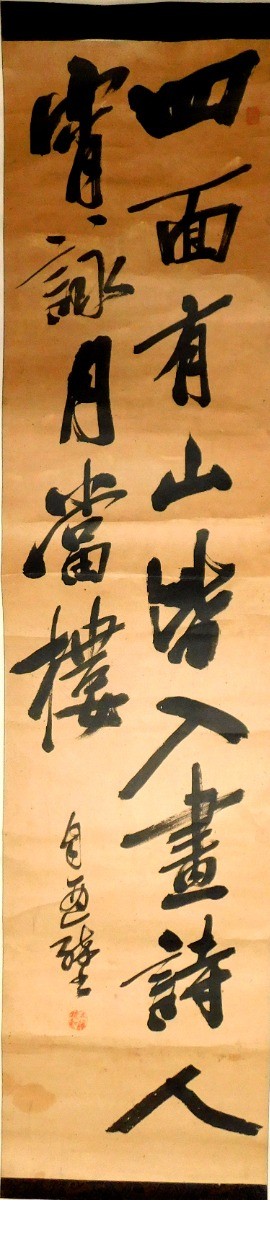 四面有山皆入畫詩人
宵詠月當樓